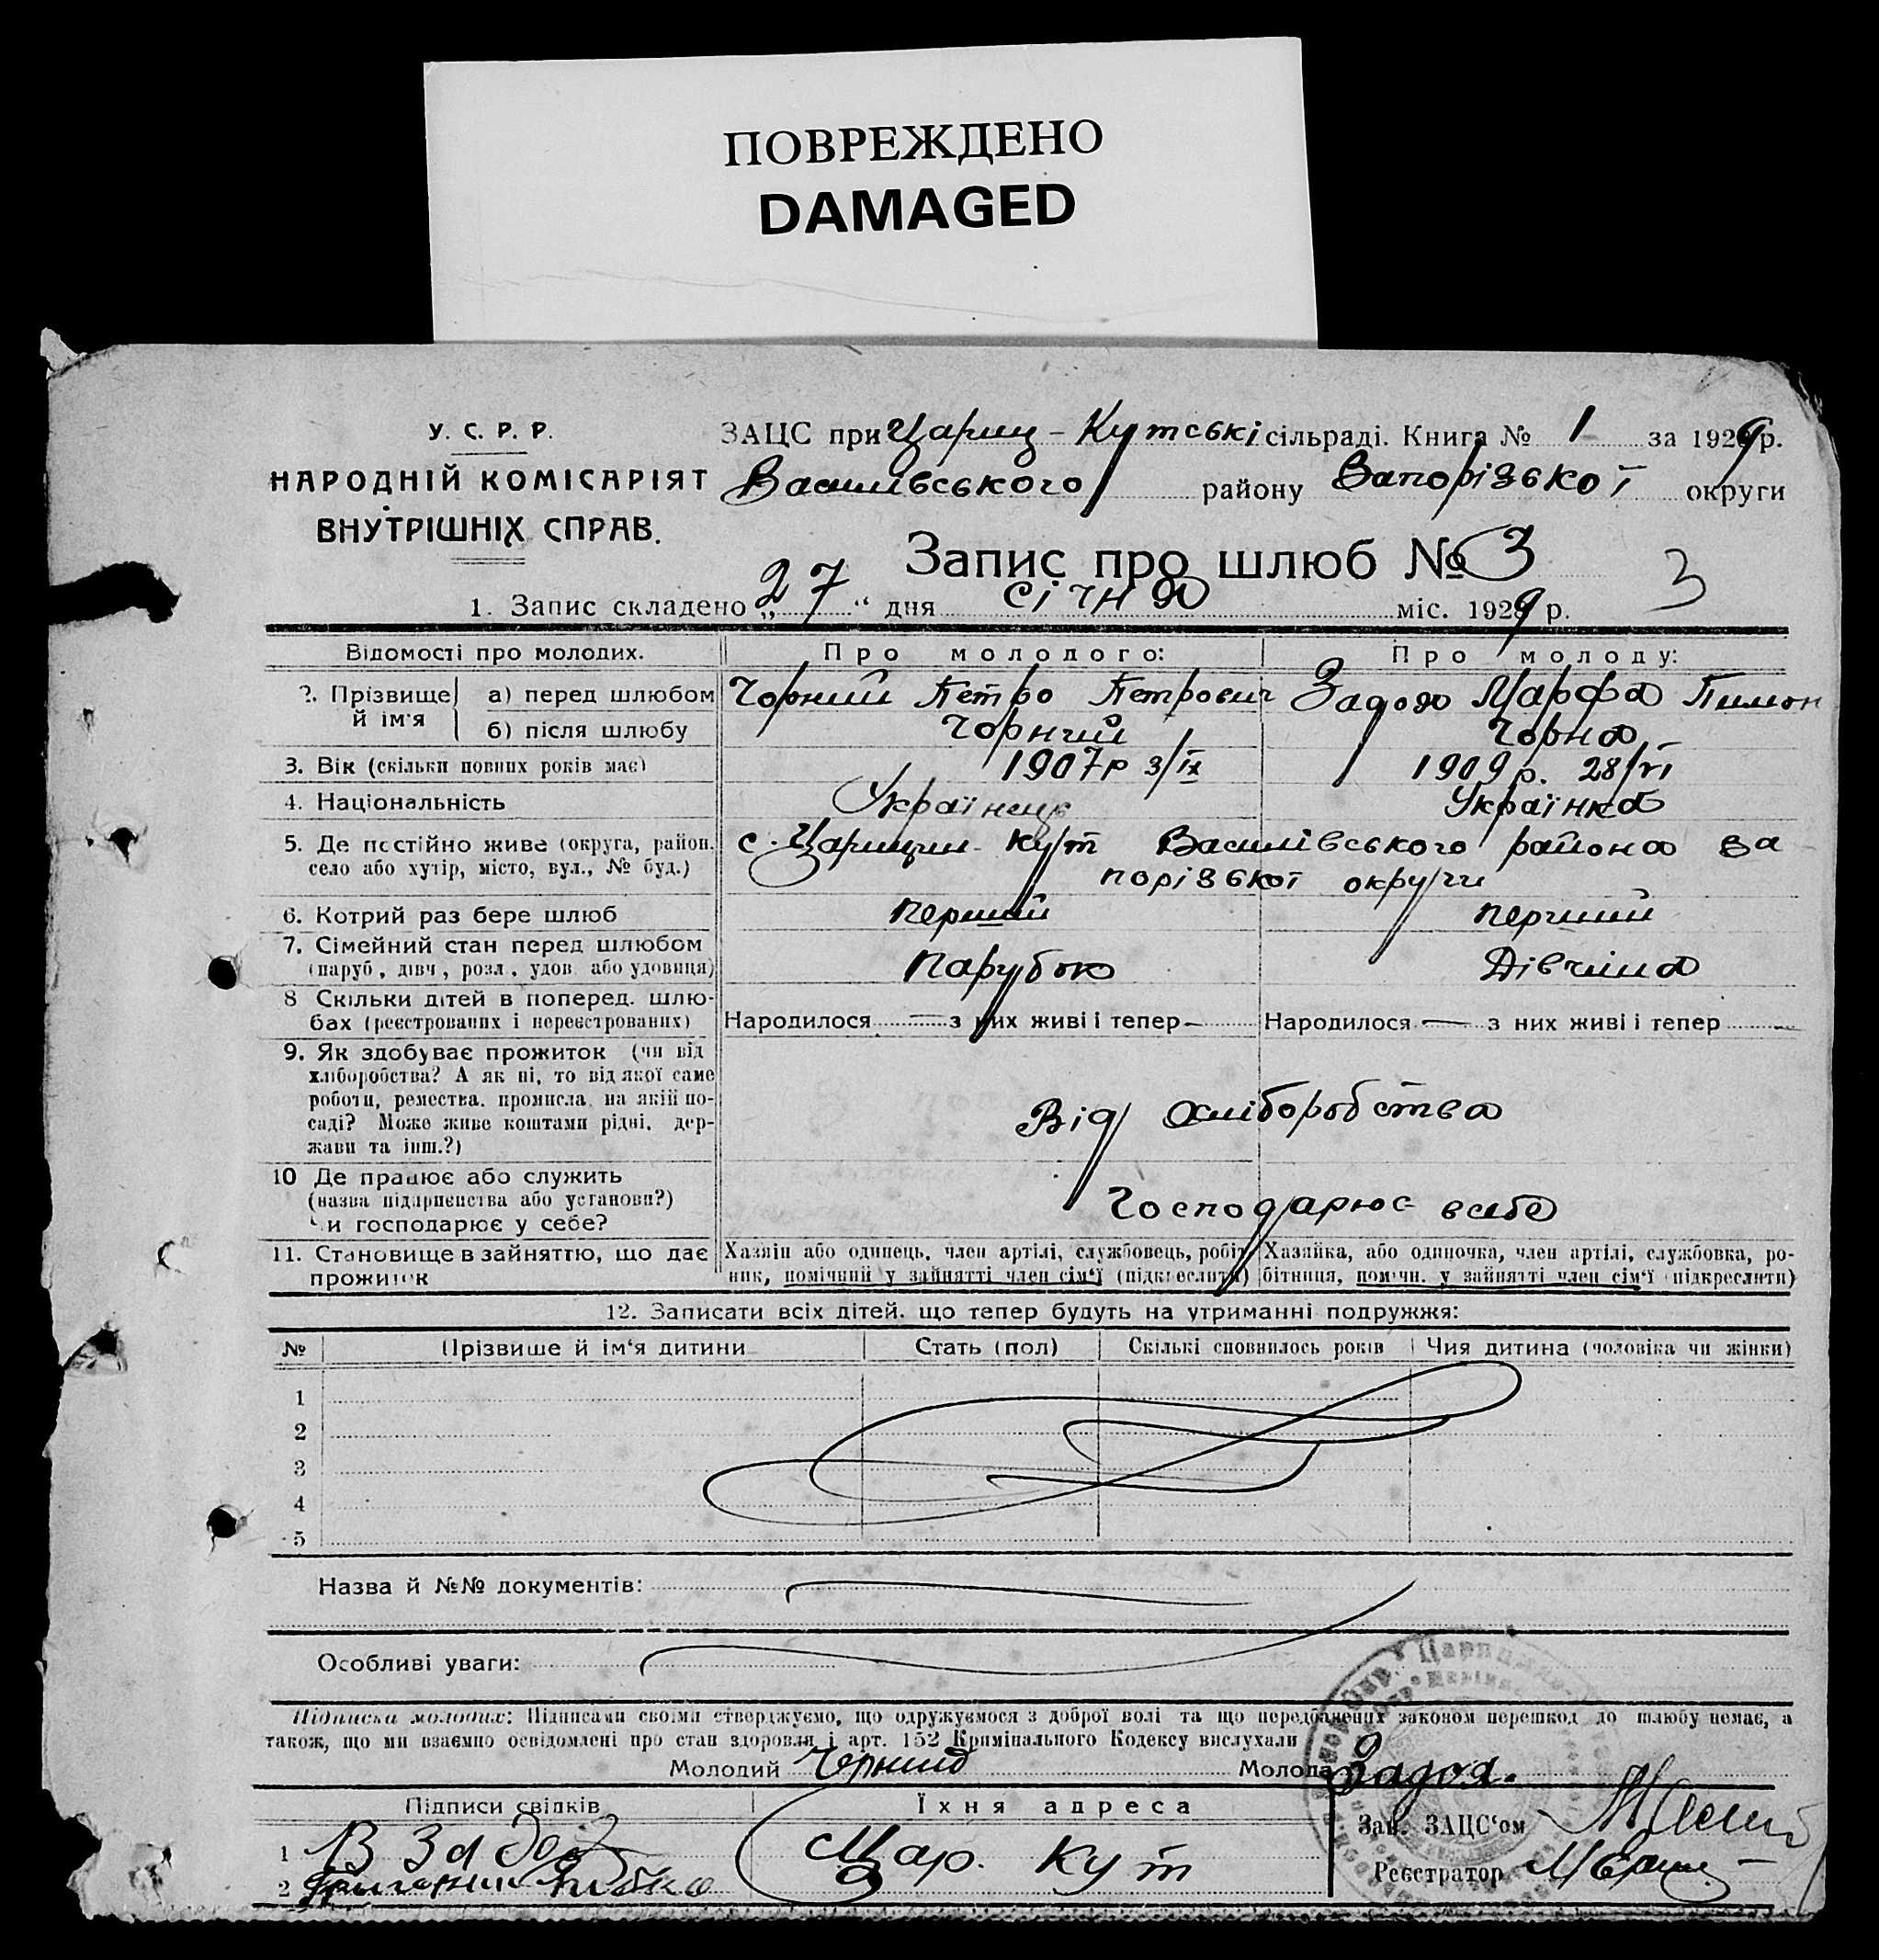 ПОВРЕЖДЕНО
DAMAGED
У. С. Р. Р.
НАРОДНІЙ КОМІСАРІЯТ
ВНУТРІШНІХ СПРАВ.
ЗАЦС при Цариц-Кутські сільраді. Книга № 1 за 1929 р.
Василівського району Запорізької округи
Запис про шлюб № 3
3
1. Запис складено „27“ дня січня міс. 1929 р.
Відомості про молодих. Про молодого: Про молоду:
2. Прізвище й ім'я а) перед шлюбом Чорний Петро Петрович Задоя Марфа Пимон
б) після шлюбу Чорний Чорна
3. Вік (скільки повних років має) 1907р 3/ІХ 1909 р. 28/VI
4. Національність Українець Українка
5. Де постійно живе (округа, район, с. Царицин-Кут Василівського района За
село або хутір, місто, вул., № буд.) порізької округи
6. Котрий раз бере шлюб перший перший
7. Сімейний стан перед шлюбом Парубок Дівчина
(паруб., дівч., розл., удов. або удовиця)
8 Скільки дітей в поперед. шлю-
бах (реєстрованих і нереєстрованих) Народилося — з них живі і тепер — Народилося — з них живі і тепер —
9. Як здобуває прожиток (чи від
хліборобства? А як ні, то від якої саме
роботи, ремества, промисла, на якій по-
саді? Може живе коштами рідні, дер-
жави та інш.?)
Від хліборобства
10 Де працює або служить
(назва підприємства або установи?)
Чи господарює у себе?
Господарює всебе
11. Становище в зайняттю, що дає
прожиток
Хазяїн або одинець, член артілі, службовець, робіт-
ник, помічний у зайнятті член сім'ї (підкреслити)
Хазяйка, або одиночка, член артілі, службовка, ро-
бітниця, помічн. у зайнятті член сім'ї (підкреслити)
12. Записати всіх дітей, що тепер будуть на утриманні подружжя:
№ Прізвище й ім'я дитини Стать (пол) Скількі сповнилось років Чия дитина (чоловіка чи жінки)
1
2
3
4
5
Назва й №№ документів:
Особливі уваги:
Підписка молодих: Підписами своїми стверджуємо, що одружуємося з доброї волі та що передбачених законом перешкод до шлюбу немає, а
також, що ми взаємно освідомлені про стан здоровля і арт. 152 Кримінального Кодексу вислухали
Молодий Чорний Молода Задоя.
Підписи свідків Їхня адреса
Зав. ЗАЦС'ом
1 В Задоя Цар. Кут
Реєстратор
2 Григорий